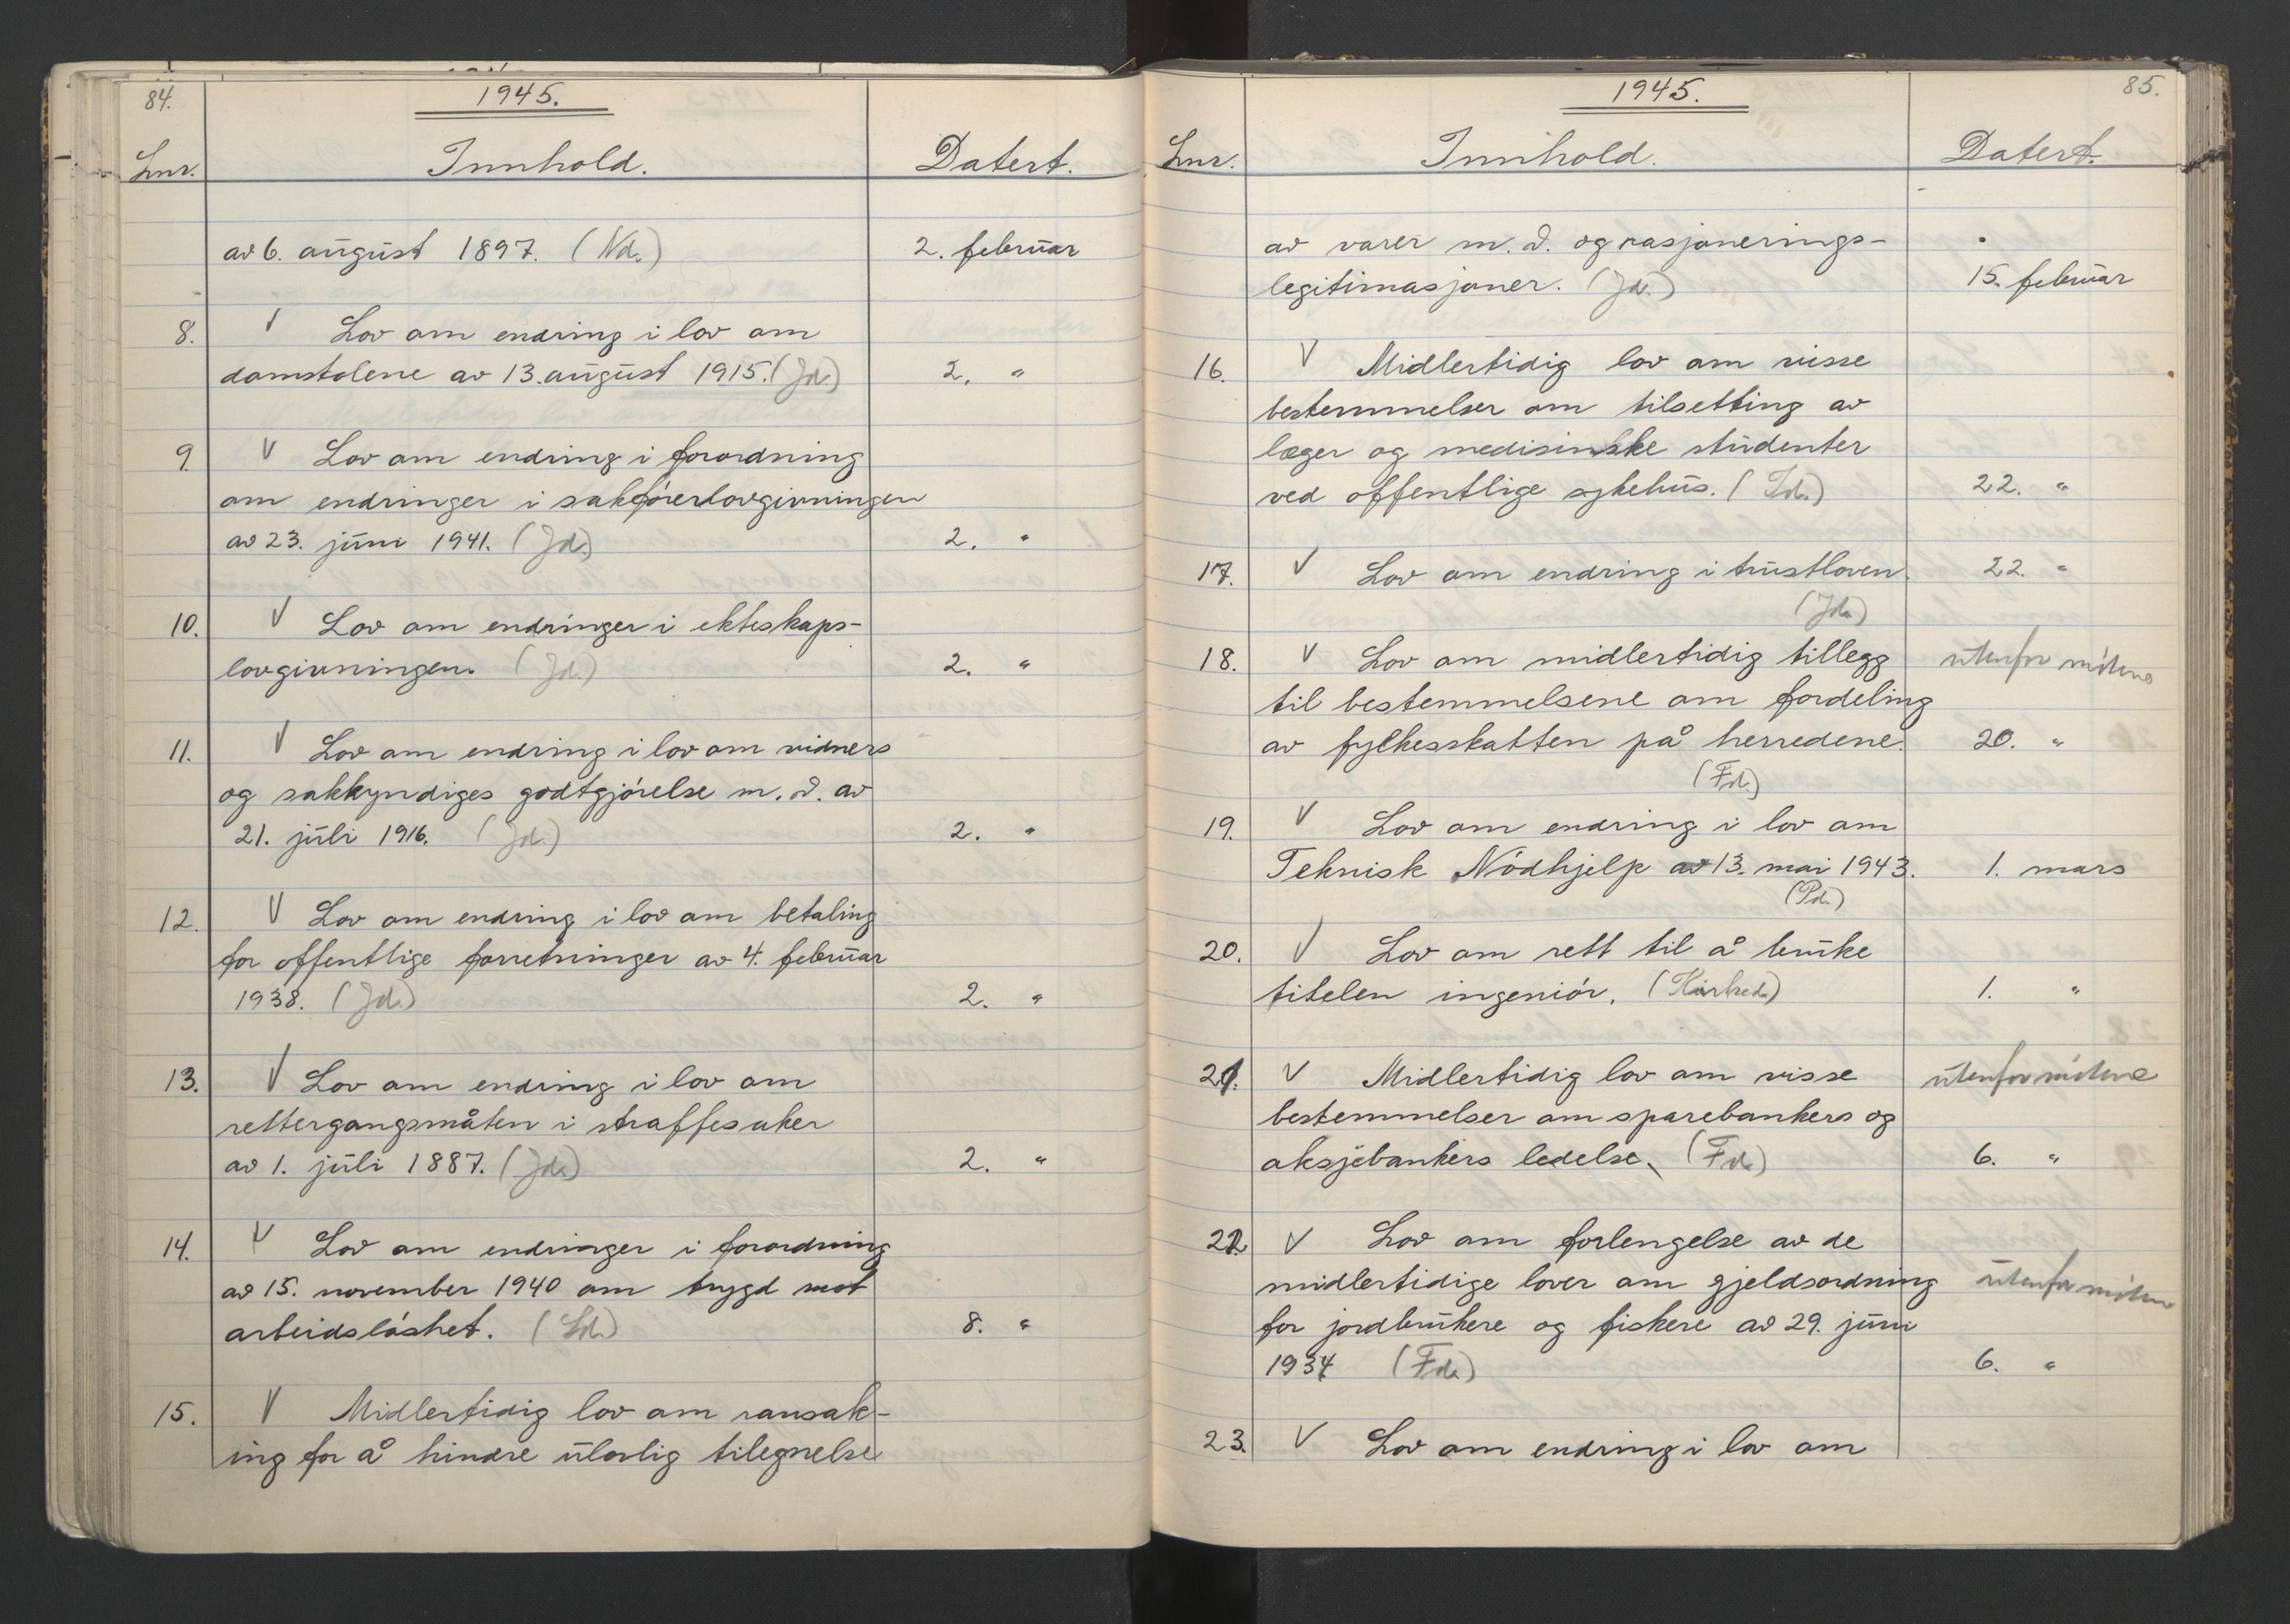 84.
1945.
Lnr.
Innhold.
Datert.
av 6. august 1897. (Nd.)
2. februar
8. V Lov om endring i lov om
domstolene av 13. august 1915. (Jd.)
2. "
9. V Lov om endring i forordning
om endringer i sakførerlovgivningen
av 23. juni 1941. (Jd.)
2. "
10. V Lov om endringer i ekteskaps-
lovgivningen. (Jd.)
2. "
11. V Lov om endring i lov om vidners
og sakkyndiges godtgjørelse m. v. av
21. juli 1916. (Jd.)
2. "
12. V Lov om endring i lov om betaling
for offentlige forretninger av 4. februar
1938. (Jd.)
2. "
13. V Lov om endring i lov om
rettergangsmåten i straffesaker
av 1. juli 1887. (Jd.)
2. "
14. V Lov om endringer i forordning
av 15. november 1940 om trygd mot
arbeidsløshet. (Sd.)
8. "
15. V Midlertidig lov om ransak-
ing for å hindre ulovlig tilegnelse
1945.
85.
Lnr.
Innhold.
Datert.
av varer m. v. og rasjonerings-
legitimasjoner. (Jd.)
15. februar
16. V Midlertidig lov om visse
bestemmelser om tilsetting av
læger og medisinske studenter
ved offentlige sykehus. (Id.)
22. "
17. V Lov om endring i trustloven.
22. "
(Jd.)
18. V Lov om midlertidig tillegg
utenfor møtene
til bestemmelsene om fordeling
av fylkesskatten på herredene.
20. "
(Fd.)
19. V Lov om endring i lov om
Teknisk Nødhjelp av 13. mai 1943.
1. mars
(Pd.)
20. V Lov om rett til å bruke
titelen ingeniør. (Kirked.)
1. "
21. V Midlertidig lov om visse
utenfor møtene
bestemmelser om sparebankers og
aksjebankers ledelse. (Fd.)
6. "
22. V Lov om forlengelse av de
midlertidige lover om gjeldsordning
utenfor møtene
for jordbrukere og fiskere av 29. juni
1934 (Fd.)
6. "
23. V Lov om endring i lov om